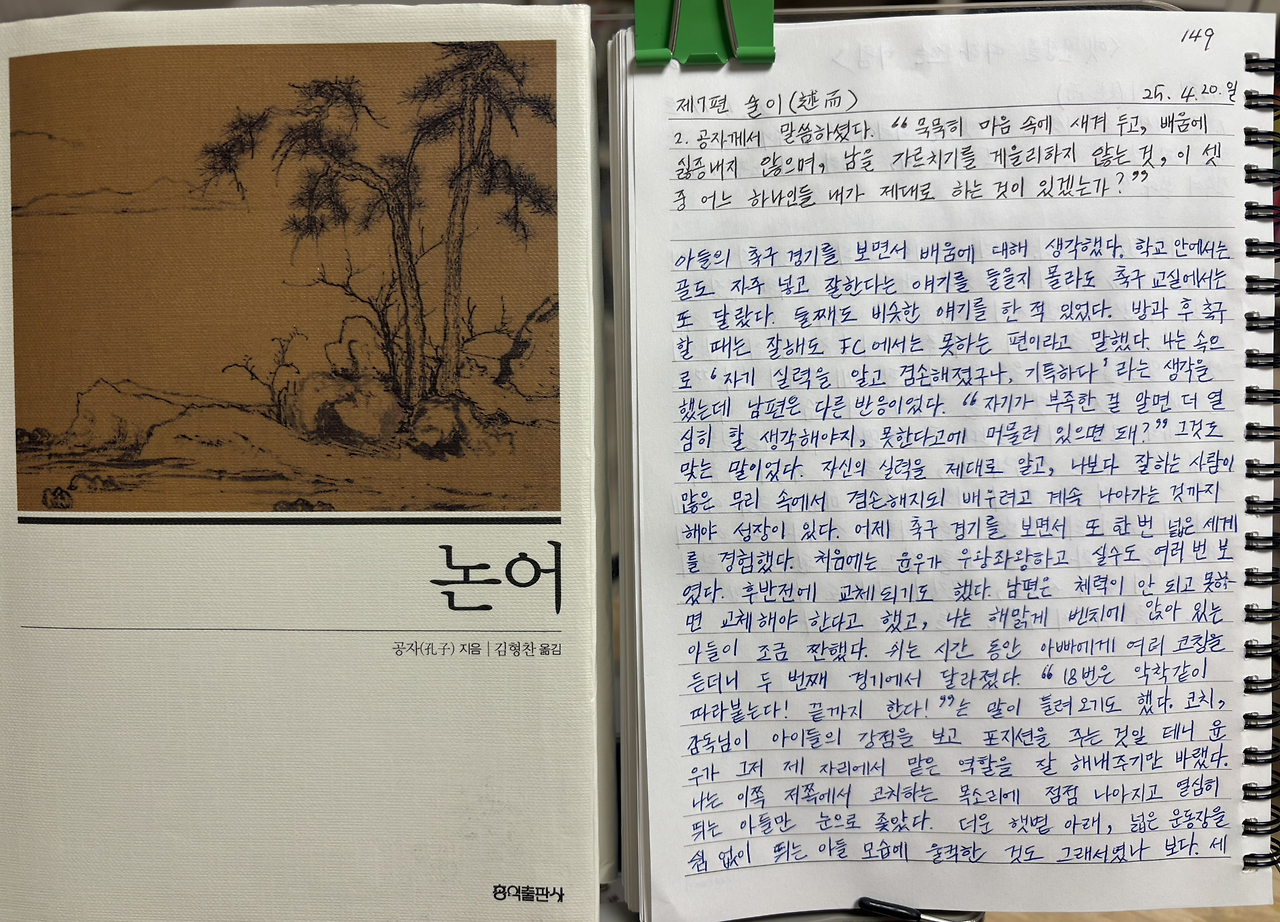 논어
공자(孔子) 지음 | 김형찬 옮김
홍익출판사
149
제7편 술이(述而) 25. 4.20.일
2. 공자께서 말씀하셨다. “묵묵히 마음 속에 새겨 두고, 배움에
싫증내지 않으며, 남을 가르치기를 게을리하지 않는 것, 이 셋
중 어느 하나인들 내가 제대로 하는 것이 있겠는가?”
아들의 축구 경기를 보면서 배움에 대해 생각했다. 학교 안에서는
골도 자주 넣고 잘한다는 얘기를 들을지 몰라도 축구 교실에서는
또 달랐다. 둘째도 비슷한 얘기를 한 적 있었다. 방과 후 축구
할 때는 잘해도 FC에서는 못하는 편이라고 말했다. 나는 속으
로 ‘자기 실력을 알고 겸손해졌구나, 기특하다’라는 생각을
했는데 남편은 다른 반응이었다. “자기가 부족한 걸 알면 더 열
심히 할 생각해야지, 못한다고에 머물러 있으면 돼?” 그것도
맞는 말이었다. 자신의 실력을 제대로 알고, 나보다 잘하는 사람이
많은 무리 속에서 겸손해지되 배우려고 계속 나아가는 것까지
해야 성장이 있다. 어제 축구 경기를 보면서 또 한번 넓은 세계
를 경험했다. 처음에는 윤우가 우왕좌왕하고 실수도 여러 번 보
였다. 후반전에 교체되기도 했다. 남편은 체력이 안 되고 못하
면 교체해야 한다고 했고, 나는 해맑게 벤치에 앉아 있는
아들이 조금 짠했다. 쉬는 시간 동안 아빠에게 여러 코칭을
듣더니 두 번째 경기에서 달라졌다. “18번은 악착같이
따라붙는다! 끝까지 한다!”는 말이 들려오기도 했다. 코치,
감독님이 아이들의 강점을 보고 포지션을 주는 것일 테니 윤
우가 그저 제 자리에서 맡은 역할을 잘 해내주기만 바랬다.
나는 이쪽 저쪽에서 코치하는 목소리에 점점 나아지고 열심히
뛰는 아들만 눈으로 좇았다. 더운 햇볕 아래, 넓은 운동장을
쉼 없이 뛰는 아들 모습에 울컥한 것도 그래서였나 보다. 세